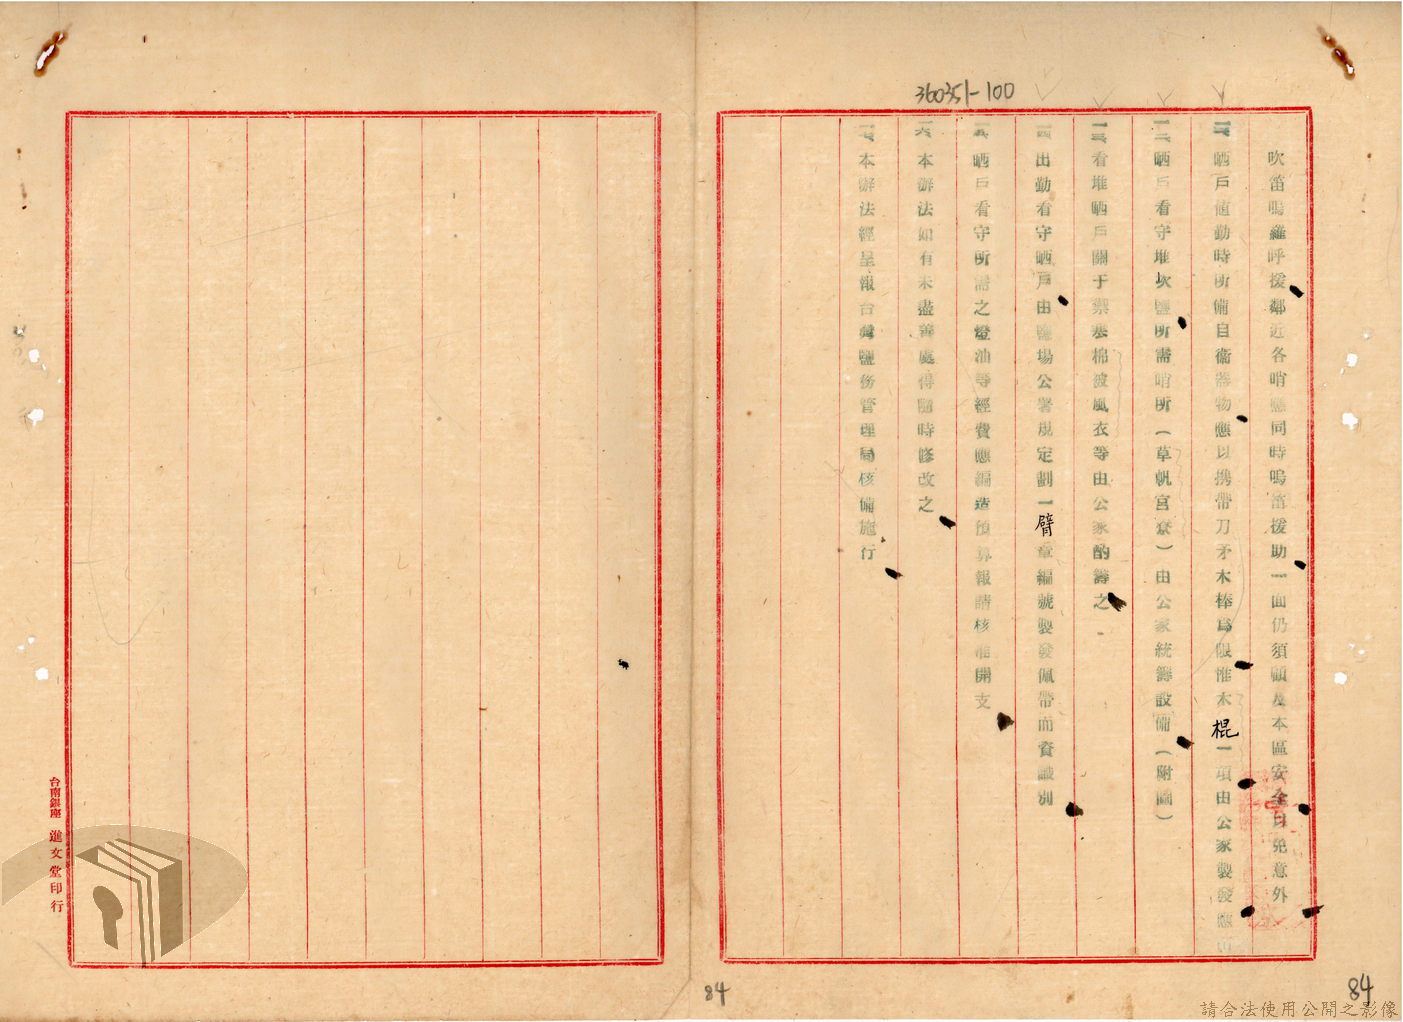 360351-100
吹笛鳴鑼呼援鄰近各哨應同時鳴笛援助一面仍須顧及本區安全以免意外
晒戶值勤時所備自衞器物應以携帶刀矛木棒為限惟木棍一項由公家製發應
一二、晒戶看守堆坎鹽所需哨所(草帆宮寮)由公家統籌設備(附圖)
一三、看堆晒戶關于禦寒棉被風衣等由公家酌籌之
一四、出勤看守晒戶由鹽場公署規定劃一臂章編號製發佩帶而資識別
一五、晒戶看守所需之燈油等經費應編造預算報請核准開支
一六、本辦法如有未盡善處得隨時修改之
一七、本辦法經呈報台灣鹽務管理局核備施行
台南銀座 進文堂印行
84
84
請合法使用公開之影像